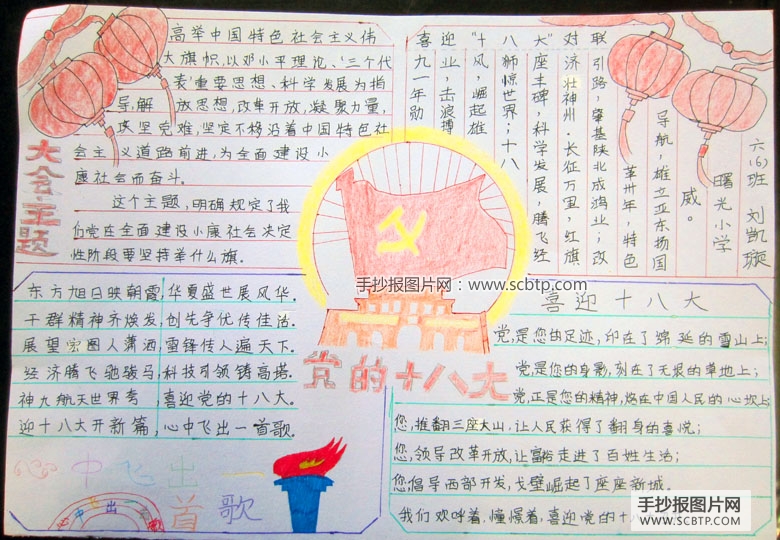 高举中国特色社会主义伟
大旗帜，以邓小平理论、'三个代
表'重要思想、科学发展为指
导，解放思想，改革开放，凝聚力量，
攻坚克难，坚定不移沿着中国特色社
会主义道路前进，为全面建设小
康社会而奋斗。
这个主题，明确规定了我
们党在全面建设小康社会决定
性阶段要坚持举什么旗。
大会主题
喜迎"十八大"对联
九一年勋业，击浪搏风，崛起雄狮惊世界；十八
座丰碑，科学发展，腾飞经济壮神州·长征万里，红旗
引路，肇基陕北成鸿业；改
革卅年，特色
导航，雄立亚东扬国
威。
曙光小学
六(6)班 刘凯璇
手抄报图片网：www.scbtp.com
党的十八大
东方旭日映朝霞，华夏盛世展风华。
干群精神齐焕发，创先争优传佳话。
展望宏图人潇洒，雷锋传人遍天下。
经济腾飞驰骏马，科技引领铸高塔。
神九航天世界夸，喜迎党的十八大。
迎十八大开新篇，心中飞出一首歌。
心中飞出一
首歌
喜迎十八大
党，是您的足迹，印在了绵延的雪山上；
党，是您的身影，刻在了无垠的草地上；
党，正是您的精神，烙在中国人民的心坎上；
您，推翻三座大山，让人民获得了翻身的喜悦；
您，领导改革开放，让富裕走进了百姓生活；
您，倡导西部开发，戈壁崛起了座座新城。
我们欢呼着，憧憬着，喜迎党的十八
手抄报图片网
WWW.SCBTP.COM